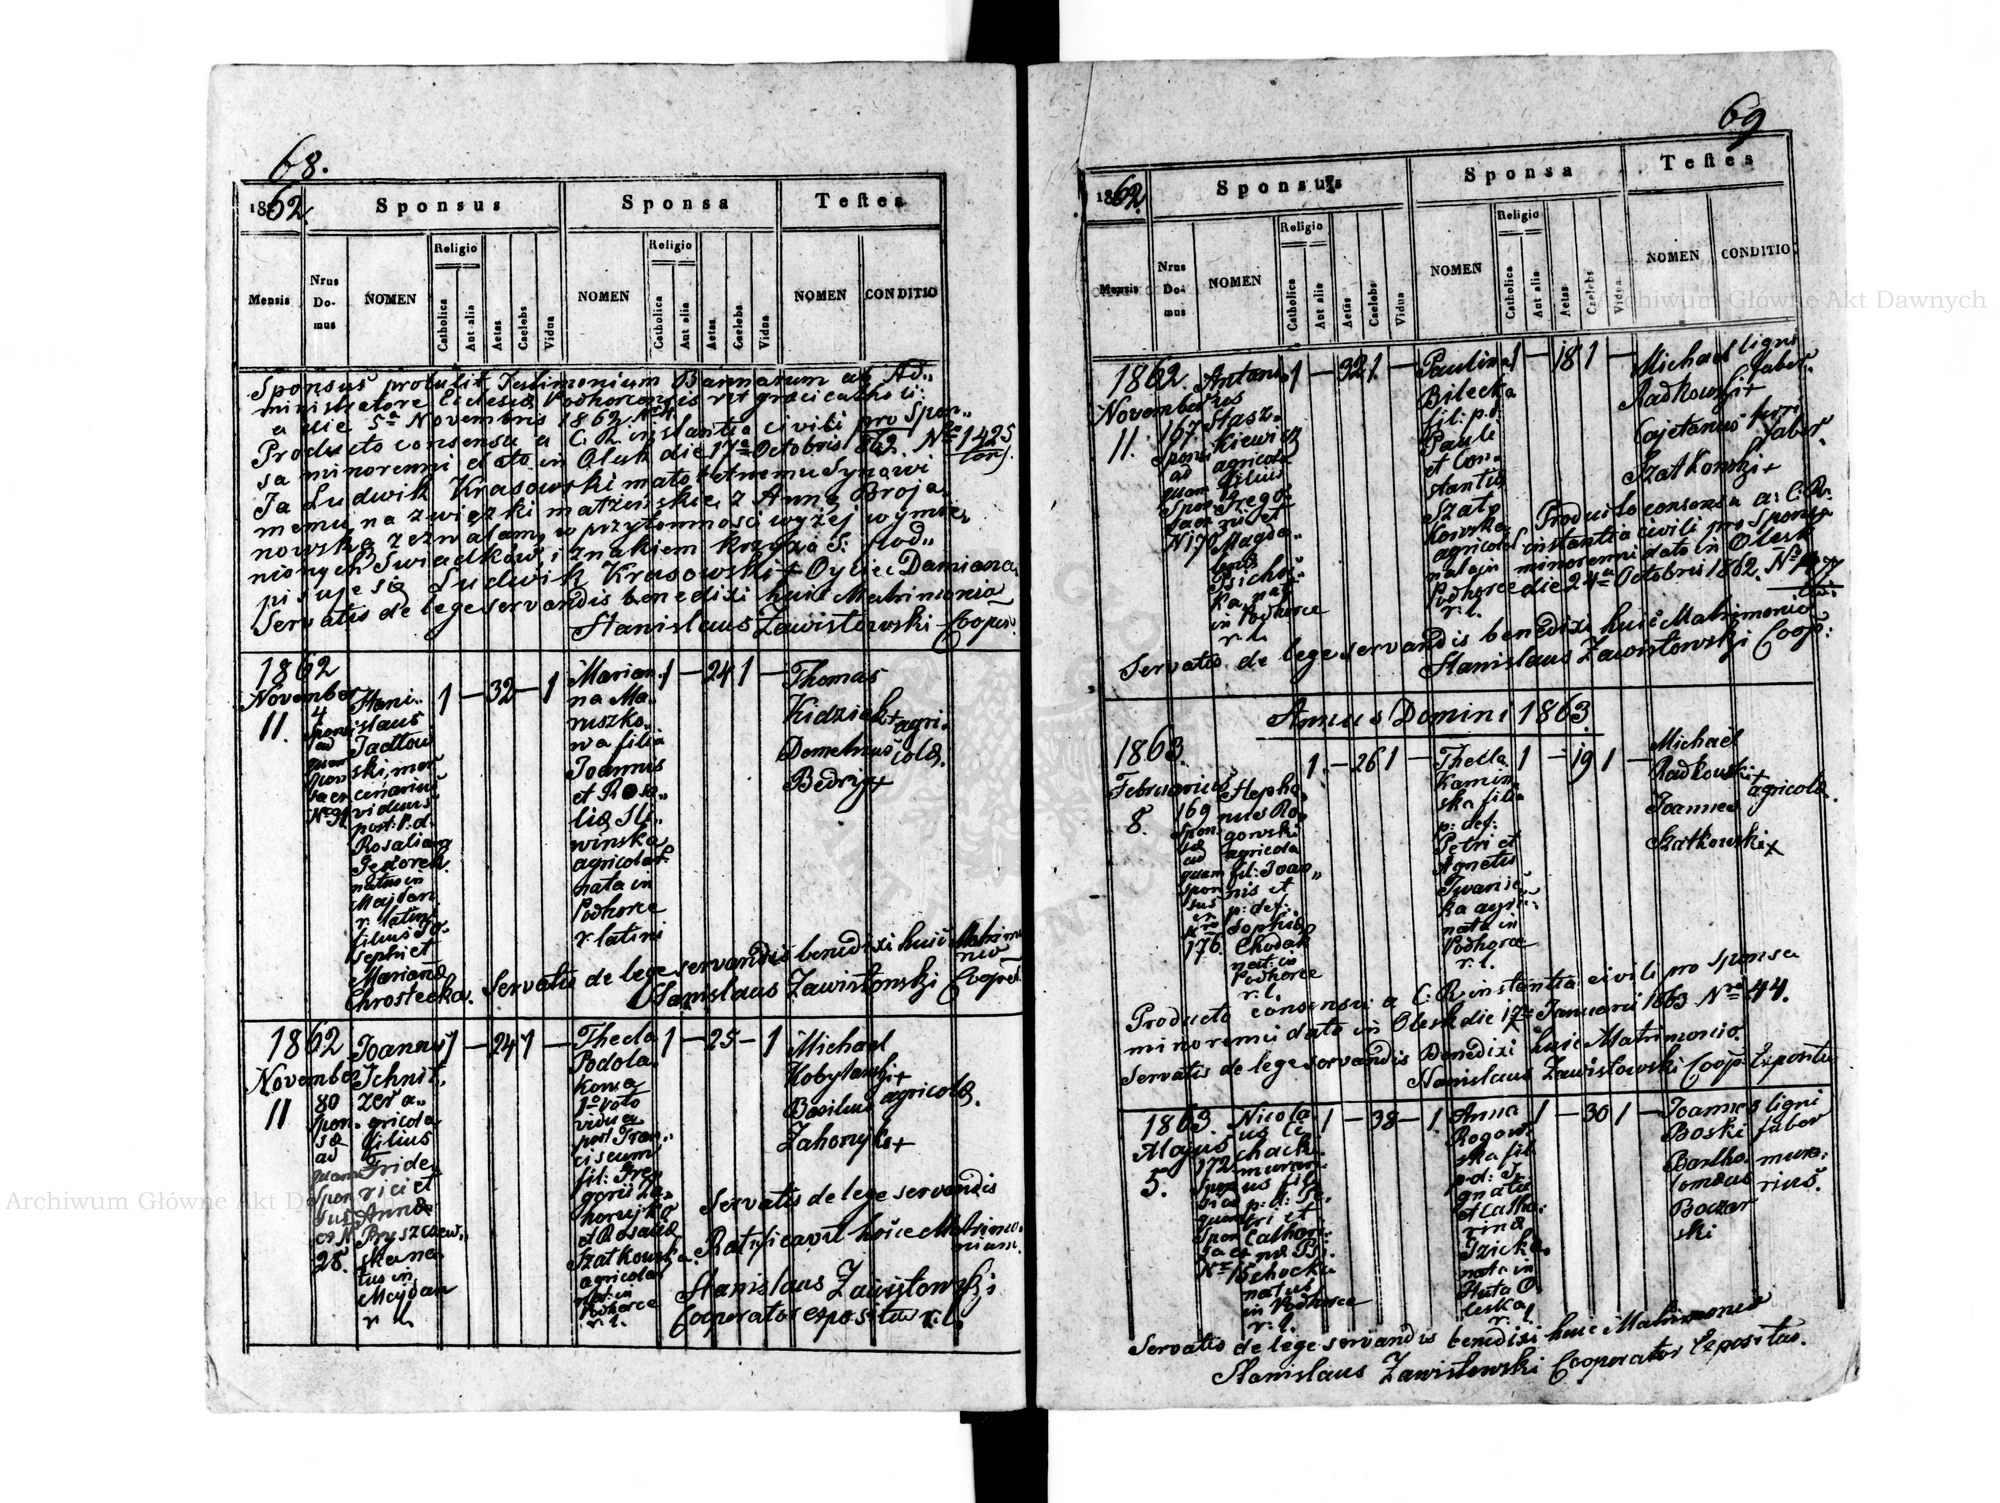 68.
1862.
Sponsus
Sponsa
Testes
Mensis
Nrus
Do-
mus
NOMEN
Religio
Catholica
Aut alia
Aetas
Caelebs
Vidua
NOMEN
Religio
Catholica
Aut alia
Aetas
Caelebs
Vidua
NOMEN
CONDITIO
Sponsus protulit Testimonium Bannorum ab Ad„
ministratore Ecclesiæ Podhorcensis rit græci catholi:
a die 5ta Novembris 1862.
Producto consensu a C. R. instantia civili pro Spon„
sa minorenni dato in Olesk die 17ma Octobris 862. Nro 1425
Ja Ludwik Krasowski małoletnemu Synowi
memu na związki małżeńskie z Anną Broja
nowską zezwalam, w przytomności wyżej wymie„
nionych Swiadków i znakiem krzyża S: pod„
pisuje się Ludwik Krasowski + Oyciec Damiana
Servatis de lege servandis benedixi huic Matrimonio
Stanislaus Zawistowski Coopr.
1862
November
11.
4
Spons:
ad
quam
Spon
sa ex
Nro 91
Stani„
slaus
Jadłow
ski, mer
cenarius
viduus
post: p. d.
Rosaliam
Fedorek
natus in
Majdan
r. latini
filius Jo„
sephi et
Mariannæ
Chrostecka.
1 — 32 — 1
Marian„
na Ma„
ruszko„
wa filia
Joannis
et Rosa„
liæ Sły„
winska
agricolar
nata in
Podhorce
r latini
1 — 24 1 —
Thomas
Kidziak +
Demetrius
Bedryj +
agri„
colæ.
Servatis de lege servandis benedixi huic Matrimo
nio
Stanislaus Zawistowski Cooper
1862
November
11
80
Spon„
sæ
ad
quam
Spon
sus
ex N
28.
Joannes
Schnit„
zer a„
gricola
filius
Fride„
rici et
Annæ
Pryszczew„
ska na„
tus in
Majdan
r l.
1 — 24 1 —
Thecla
Podola„
kowa
1o voto
vidua
post Fran„
ciscum
fil: Gre„
gorii Za„
horujko
et Rosaliæ
Szatkowska
agricolar
nat: in
Podhorce
r. l.
1 — 25 — 1
Michael
Kobylanski +
Basilius
Zahorujko +
agricolæ.
Servatis de lege servandis
Ratificavit hoice Matrimo„
nium.
Stanislaus Zawistowski
Cooperator expositus r. l.
69
1862.
Sponsus
Sponsa
Testes
Mensis
Nrus
Do-
mus
NOMEN
Religio
Catholica
Aut alia
Aetas
Caelebs
Vidua
NOMEN
Religio
Catholica
Aut alia
Aetas
Caelebs
Vidua
NOMEN
CONDITIO
1862.
November
11.
167
Sponsi
ad
quam
Spon
sa ex
N 170
Antoni„
us
Stasz„
kiewicz
agricola
filius
Grego„
rii et
Magda„
lenæ
Psichoć„
ka, nat
in Podhorce
r. l.
1 — 32 1. —
Paulina
Bilecka
fil: p. d.
Pauli
et Con„
stantiæ
Szat„
kowska
agricolar
nata in
Podhorce
r. l.
1 — 18 1 —
Michael
Radkowski +
ligni
faber.
Cajetanus
Szatkowski +
ferri
faber.
Producto consensu a: C. R.
instantia civili pro Sponsa
minorenni dato in Olesk
die 24ta Octobris 1862. Nro
Servatis de lege servandis benedixi huic Matrimonio
Stanislaus Zawistowski Coop:
Annus Domini 1863.
1863.
Februarius
8.
169
Spon„
sæ
ad
quam
spon
sus
ex
Nro
176.
Stepha„
nus Ro„
gowski
agricola
fil: Joan„
nis et
p: def:
Sophiæ
Chodak
nat: in
Podhorce
r. l.
1. — 26 1 —
Thecla
Kamin„
ska filia
p: def:
Petri et
Agnetis
Iwanic„
ka agri„
nata in
Podhorce
r. l.
1 — 19 1 —
Michael
Radkowski +
Joannes
Szatkowski x
agricolæ.
Producto consensu a C. R. instantia civili pro sponsa
minorenni dato in Olesk die 17ma Januarii 1863 Nro 44.
Servatis de lege servandis Benedixi huic Matrimonio.
Stanislaus Zawistowski Coop. Expositus
1863.
Majus
5.
172
Spon
si ad
quam
Spon
sa ex
Nro 15
Nicola
us Ce„
chacki
murari„
us fil:
p: d: Pe„
tri et
Catha„
rinæ Ps„
chocka
natus
in Podhorce
r: l.
1 — 38 — 1.
Anna
Rogow„
ska fil
p: d: I„
gnatii
et Catha„
rinæ
Gzicka.
nata in
Huta O
leska
r. l.
1 — 30 1 —
Joannes
Boski
ligni
faber
Bartho„
lomæus
Boczar
ski
mura„
rius.
Servatis de lege servandis benedixi huic Matrimonio
Stanislaus Zawistowski Cooperator Expositus.
Archiwum Główne Akt Dawnych
Archiwum Główne Akt Dawnych